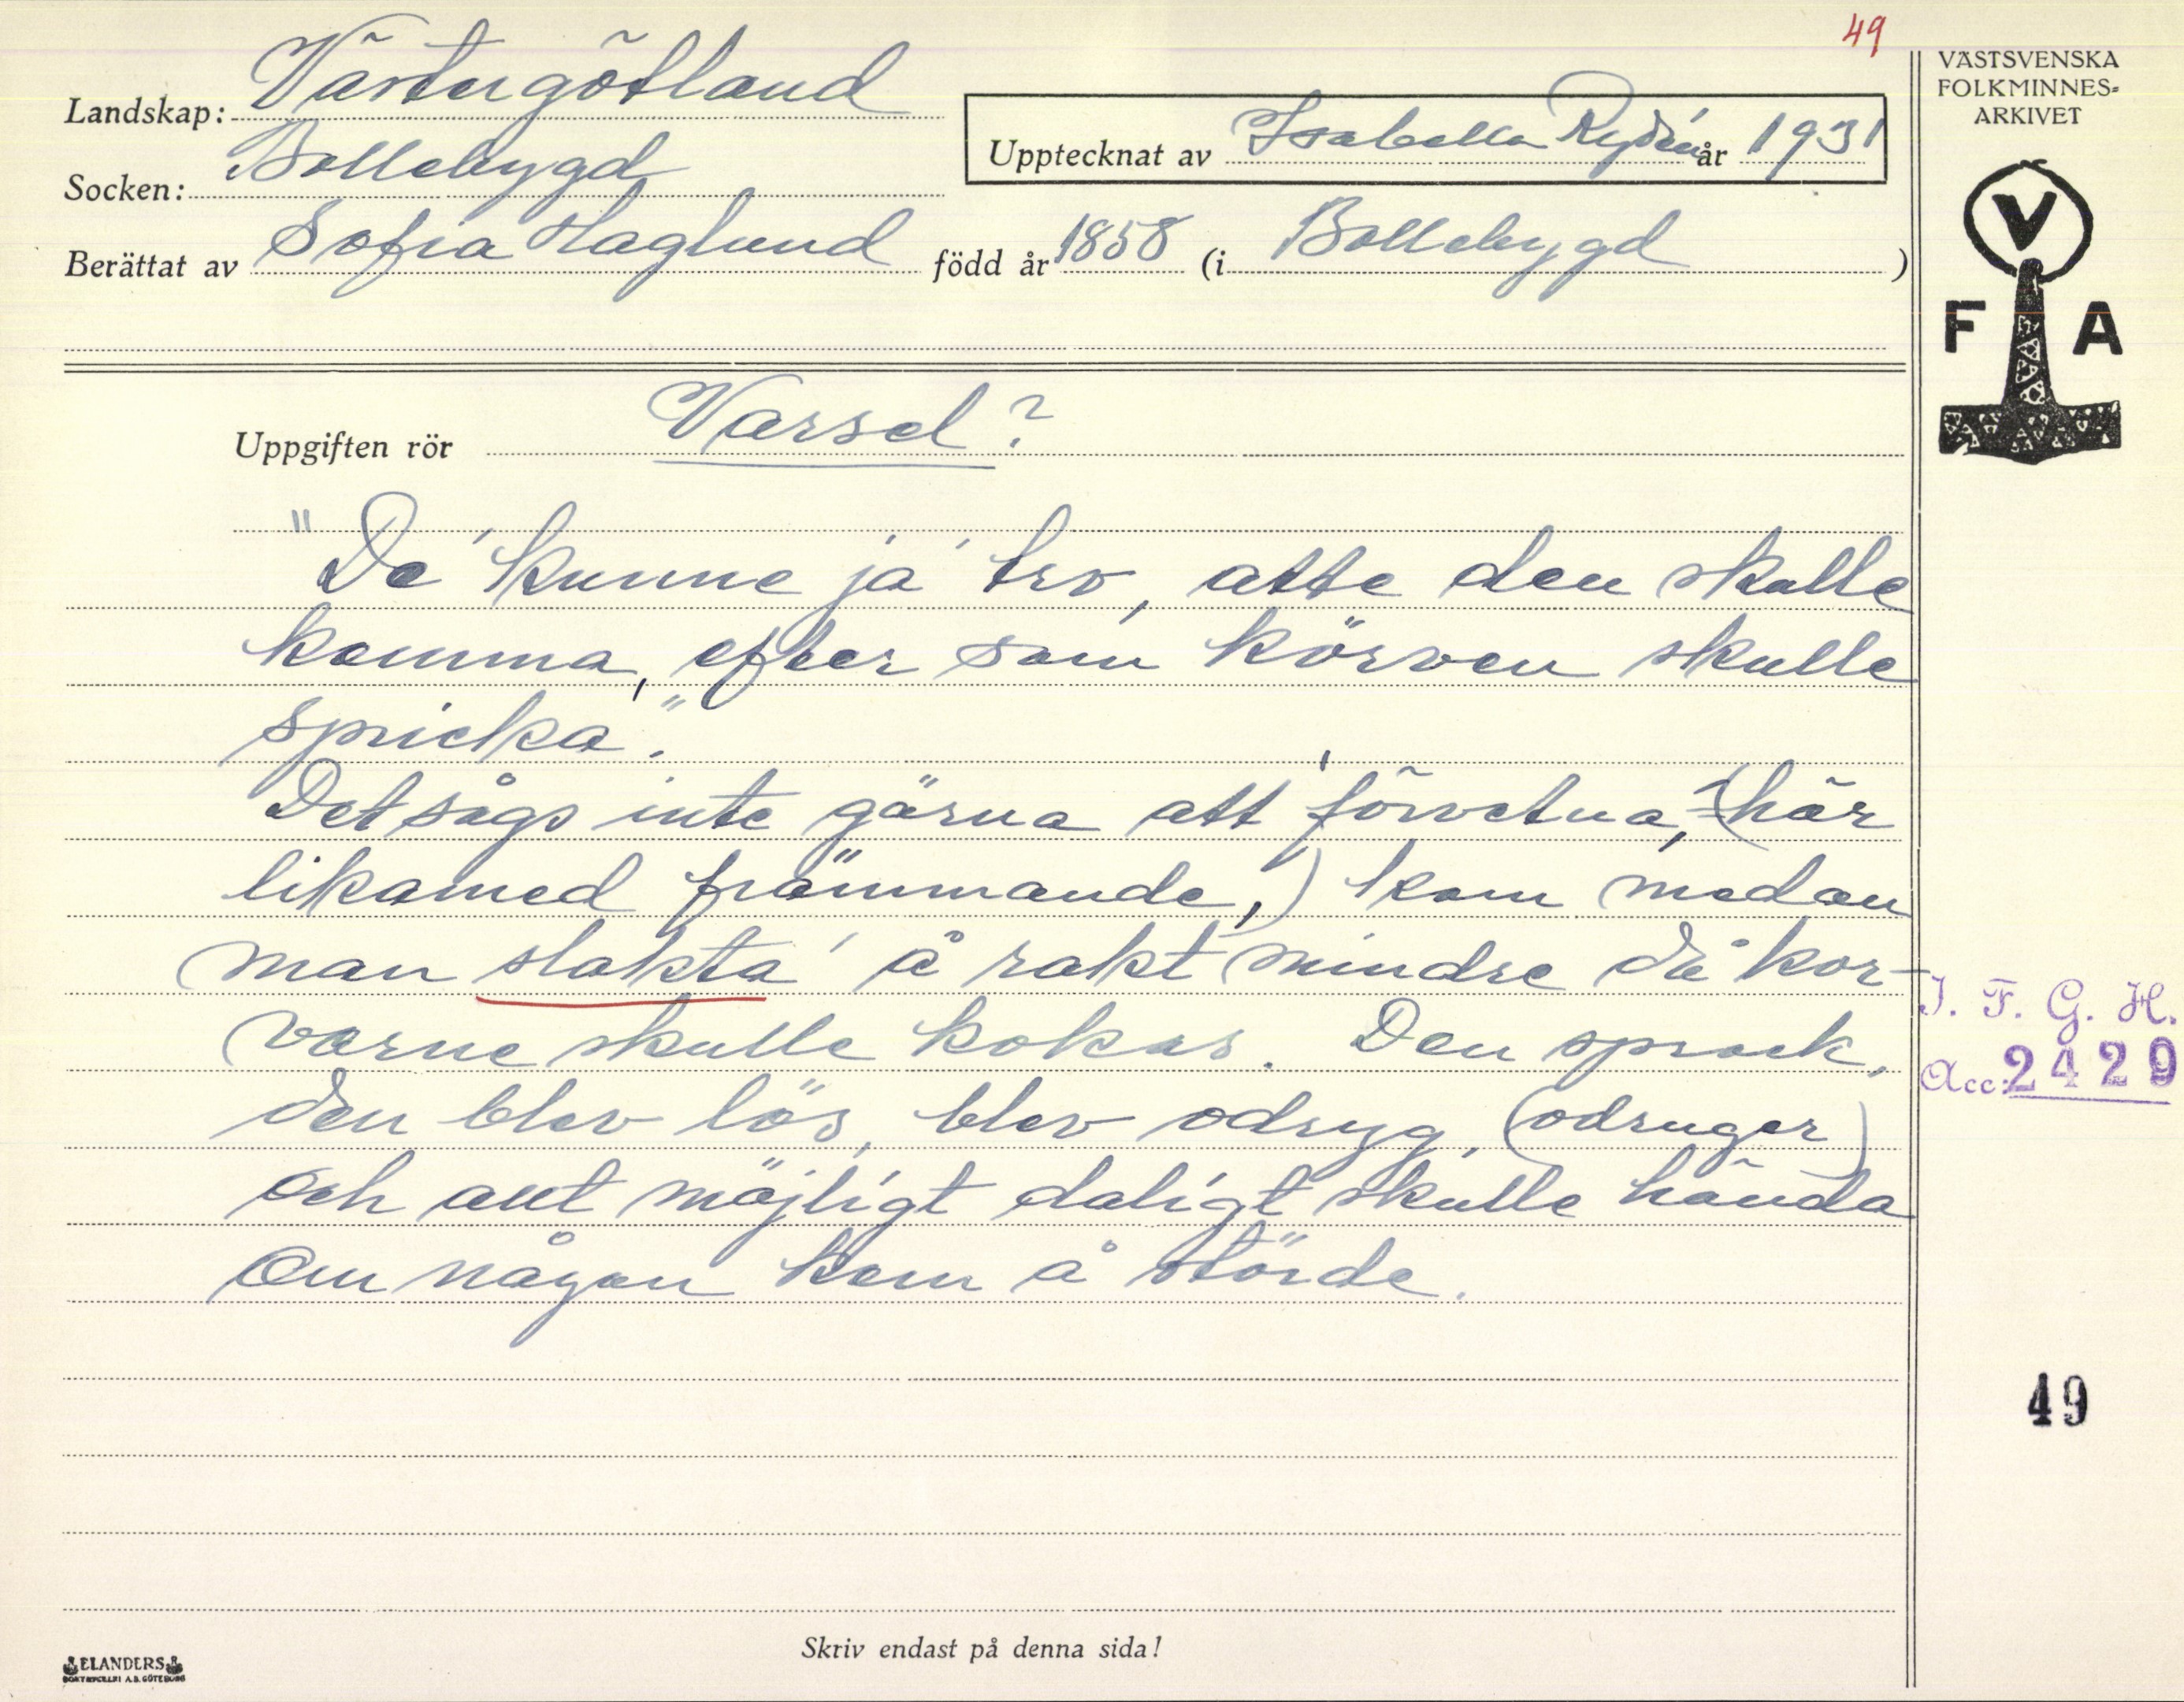 49
Landskap: Västergötland
Socken: Bollebygd
Upptecknat av Isabella Rydén år 1931
Berättat av Sofia Haglund född år 1858 (i Bollebygd )
VÄSTSVENSKA
FOLKMINNES-
ARKIVET
V
F A
Uppgiften rör Varsel?
"De' kunne ja' tro, atte den skulle
komma, efter som körven skulle
spricka."
Det sågs inte gärna att förvetna, (här
likamed främmande,) kom medan
man slakta' å rakt mindre då kor-
varne skulle kokas. Den sprack,
den blev lös, blev odryg, (odruger)
och allt möjligt daligt skulle hända
om någon kom å störde.
I. F. G. H.
Acc: 2429
49
Skriv endast på denna sida!
ELANDERS
BOKTRYCKERI A.B. GÖTEBORG